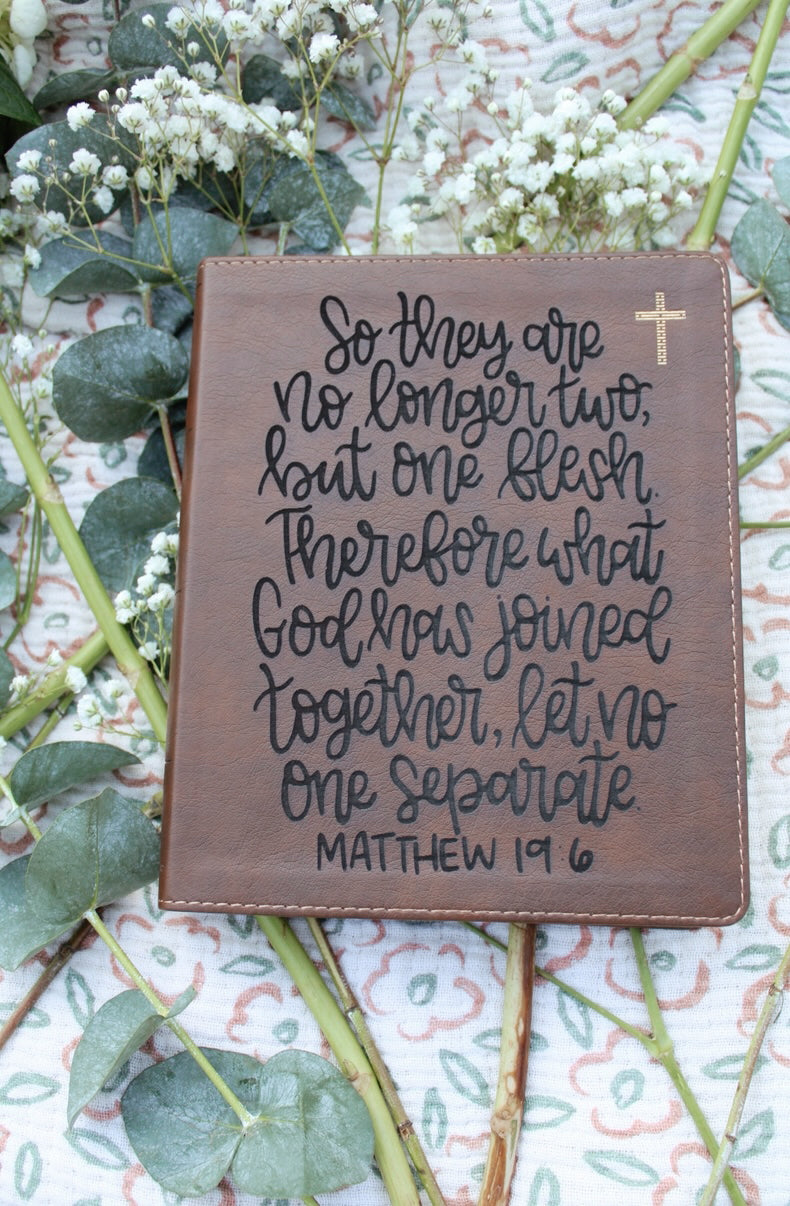 So they are
no longer two,
but one flesh.
Therefore what
God has joined
together, let no
one separate.
MATTHEW 19 6